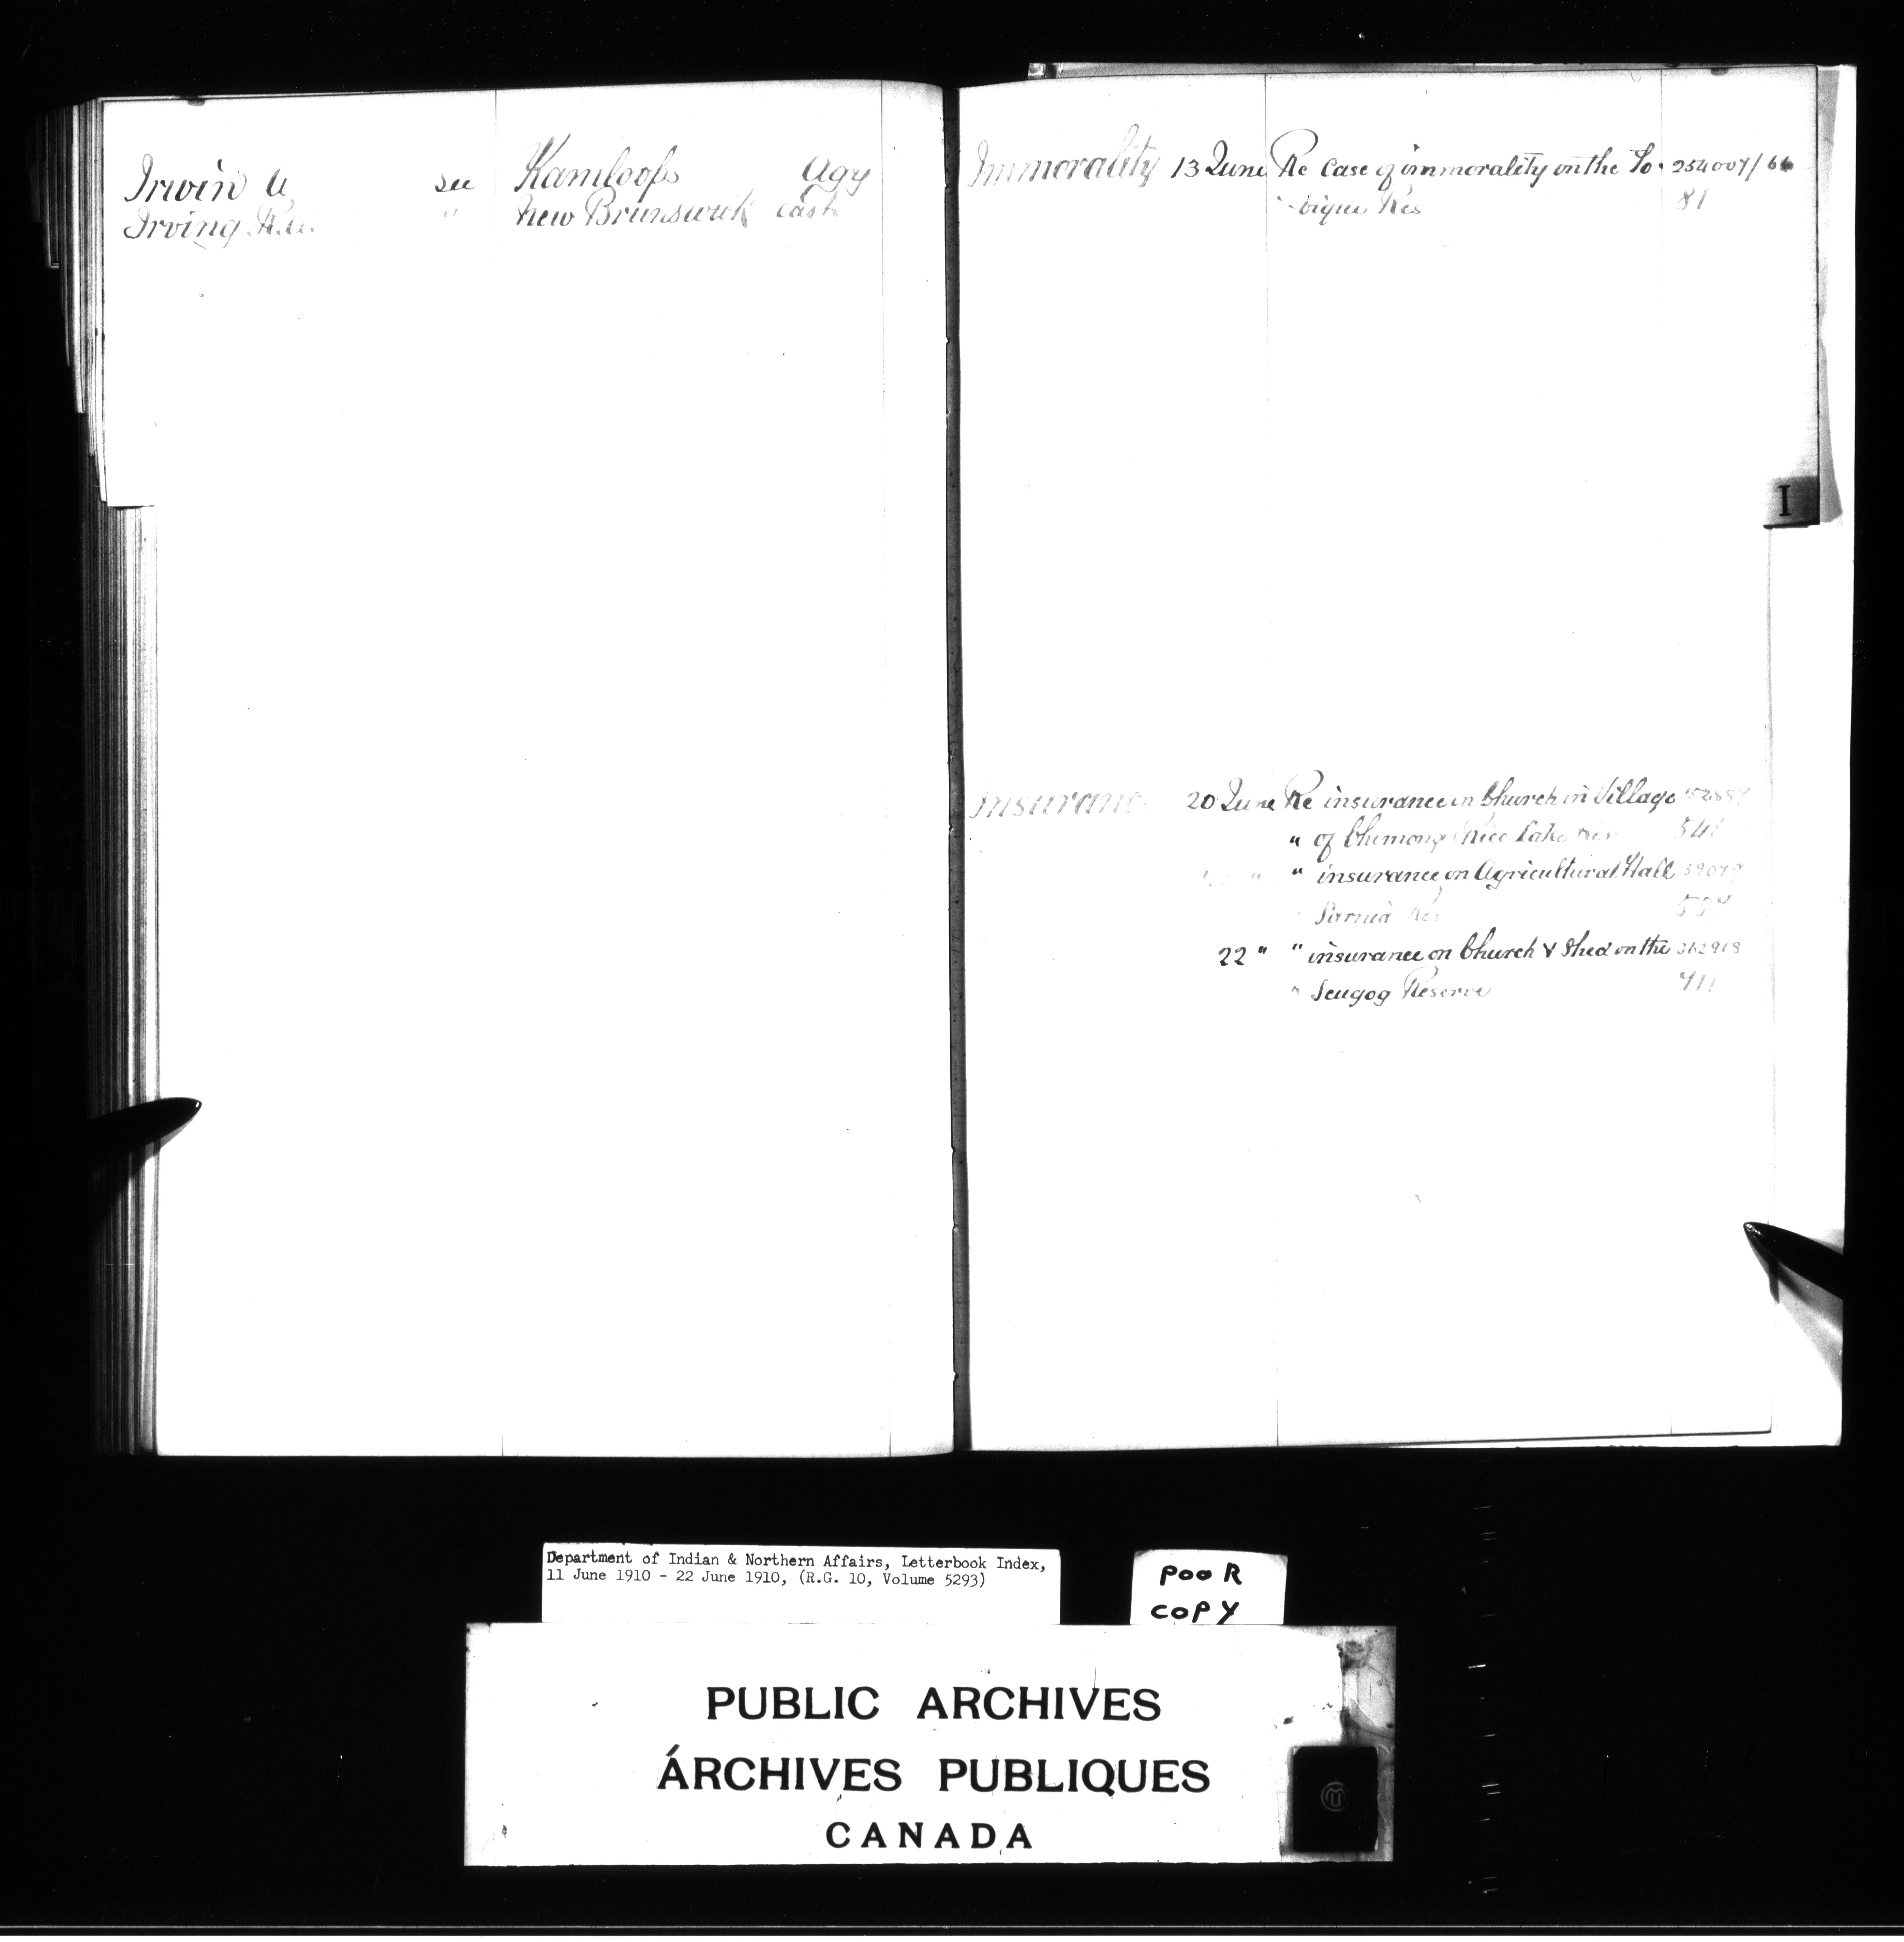 Irwin A see Kamloops Agy
Irving " New Brunswick East
Immorality 13 June Re Case of immorality on the To- 254007/
-bique Res 81
I
Insurance 20 June Re insurance on Church in Village
" of Chemong Rice Lake
" " insurance on Agricultural Hall
Sarnia Res
22 " " insurance on Church & Shed on the
" Scugog Reserve 711
Department of Indian & Northern Affairs, Letterbook Index,
11 June 1910 - 22 June 1910, (R.G. 10, Volume 5293)
POOR
COPY
PUBLIC ARCHIVES
ARCHIVES PUBLIQUES
CANADA